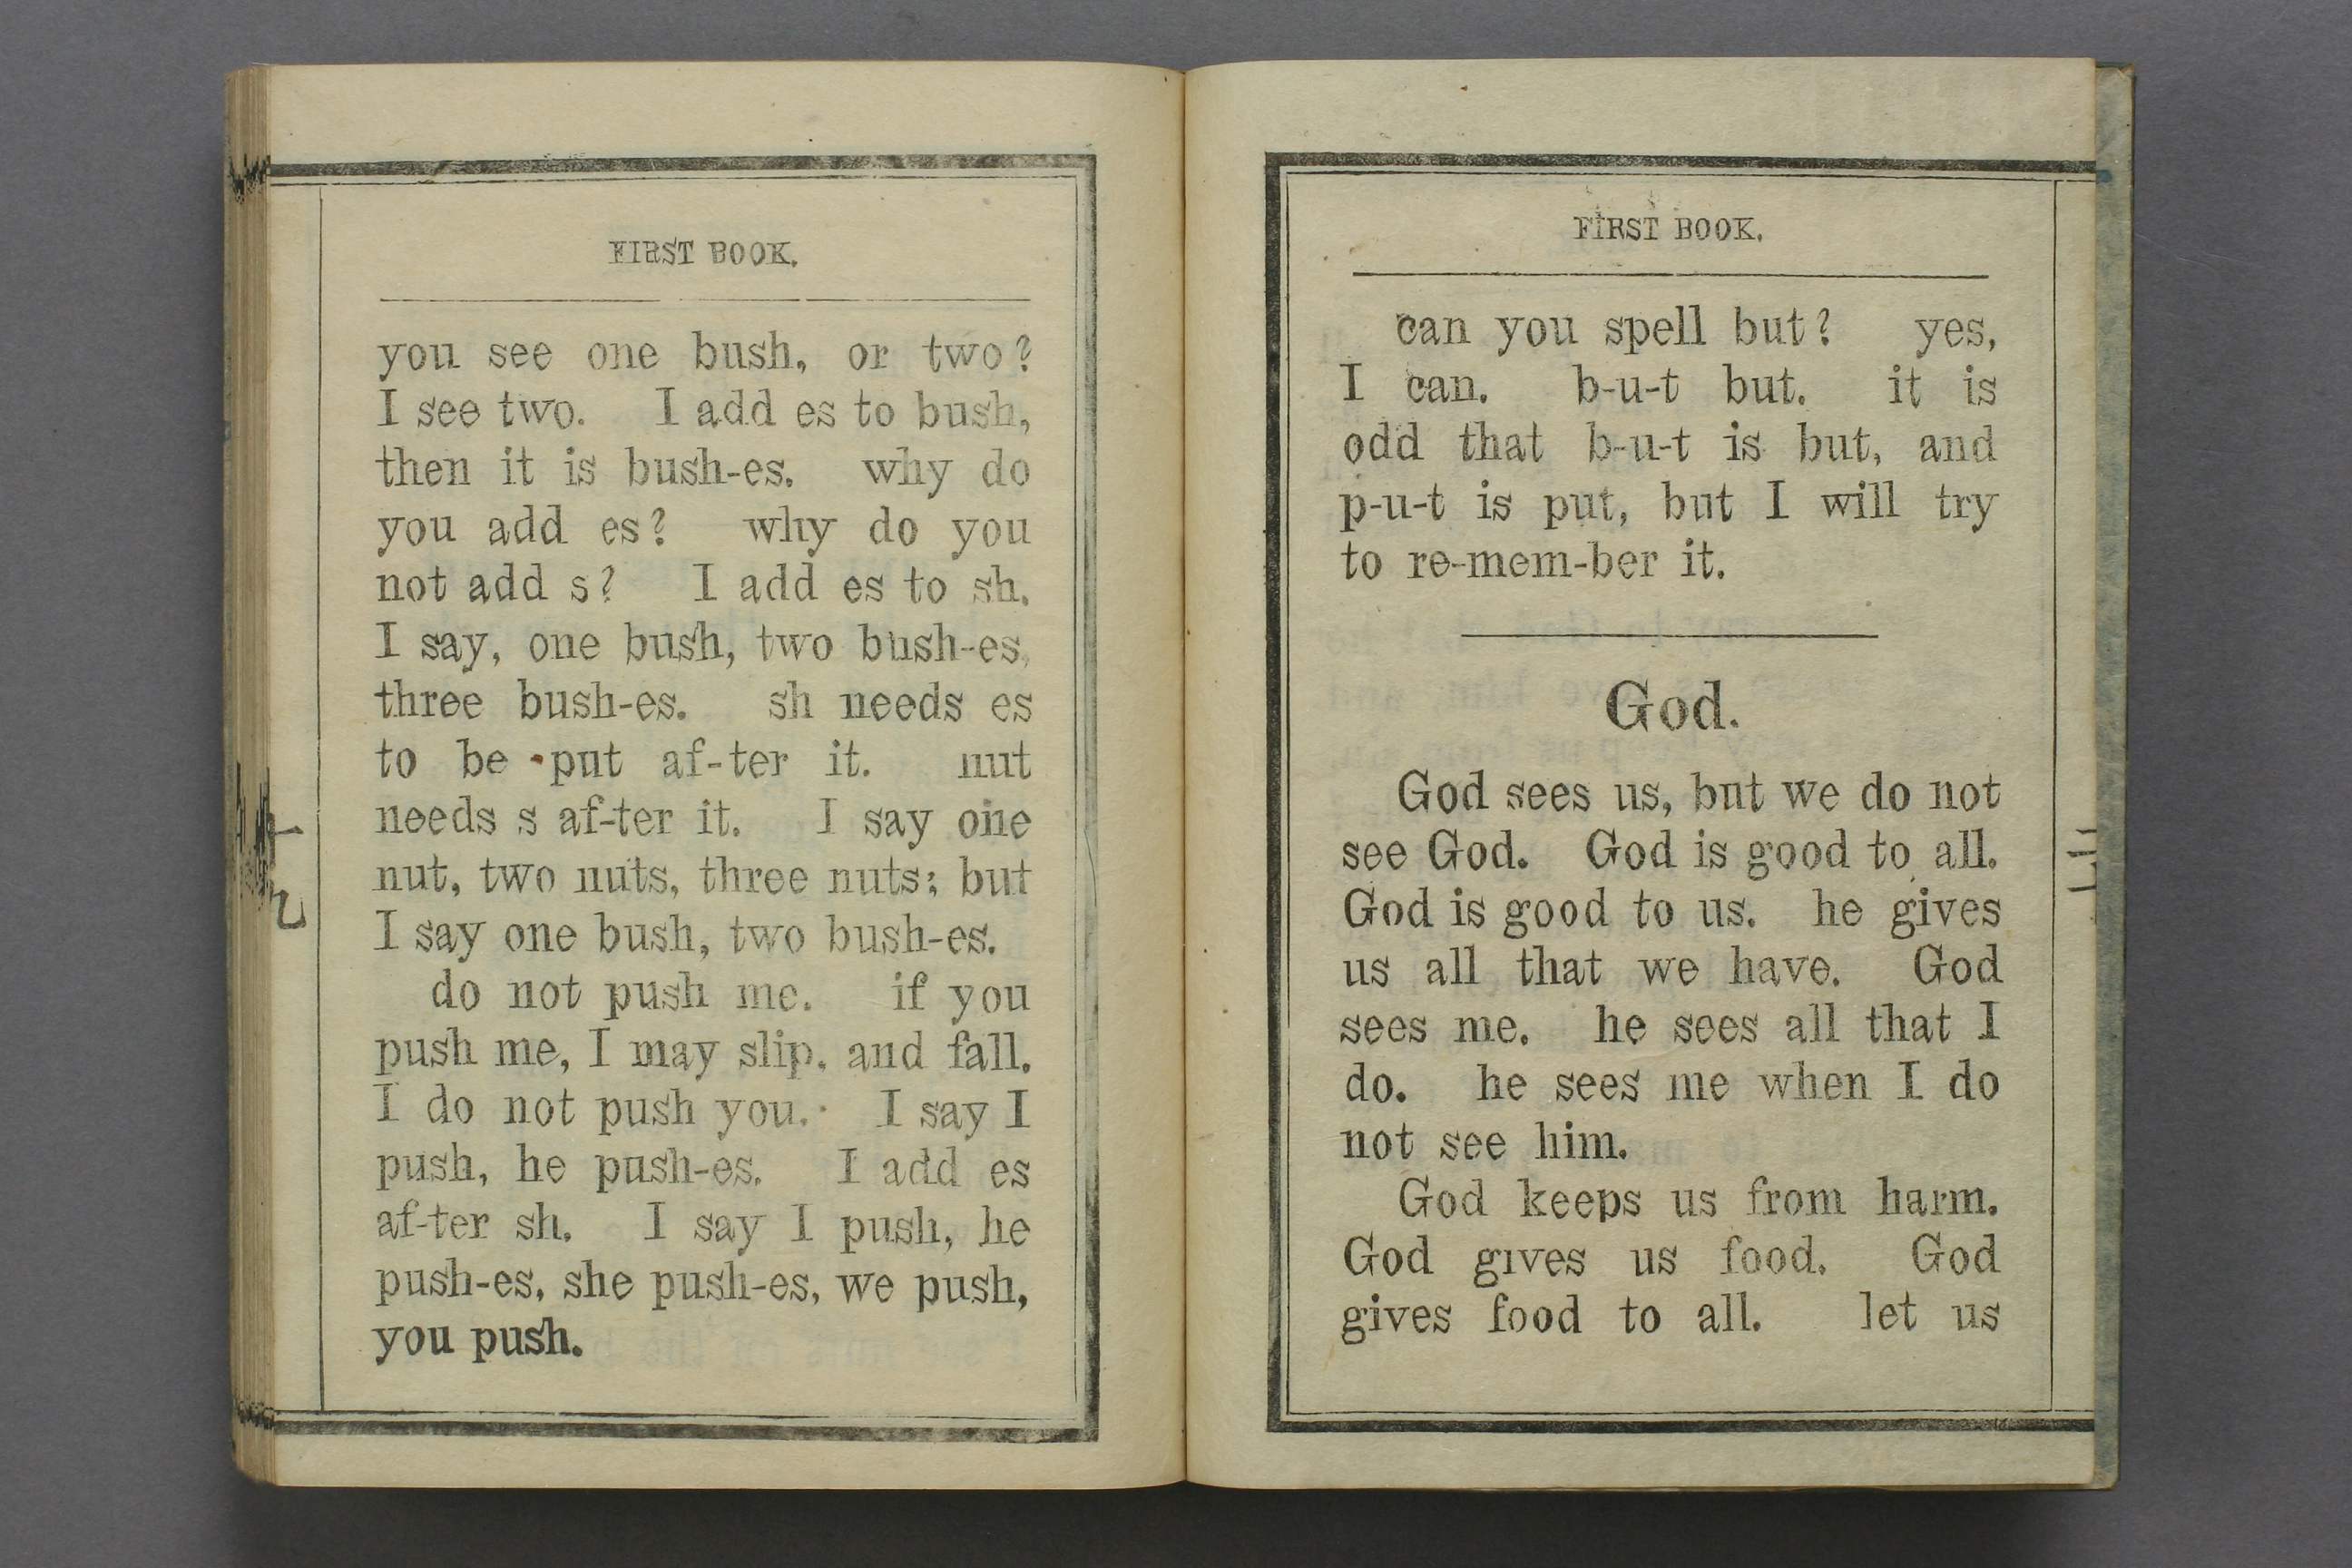 FIRST BOOK.
you see one bush, or two?
I see two. I add es to bush,
then it is bush-es. why do
you add es? why do you
not add s? I add es to sh.
I say, one bush, two bush-es,
three bush-es. sh needs es
to be put af-ter it. nut
needs s af-ter it. I say one
nut, two nuts, three nuts; but
I say one bush, two bush-es.
do not push me. if you
push me, I may slip. and fall.
I do not push you. I say I
push, he push-es. I add es
af-ter sh. I say I push, he
push-es, she push-es, we push,
you push.
FIRST BOOK.
can you spell but? yes,
I can. b-u-t but. it is
odd that b-u-t is but, and
p-u-t is put, but I will try
to re-mem-ber it.
God.
God sees us, but we do not
see God. God is good to all.
God is good to us. he gives
us all that we have. God
sees me. he sees all that I
do. he sees me when I do
not see him.
God keeps us from harm.
God gives us food. God
gives food to all. let us